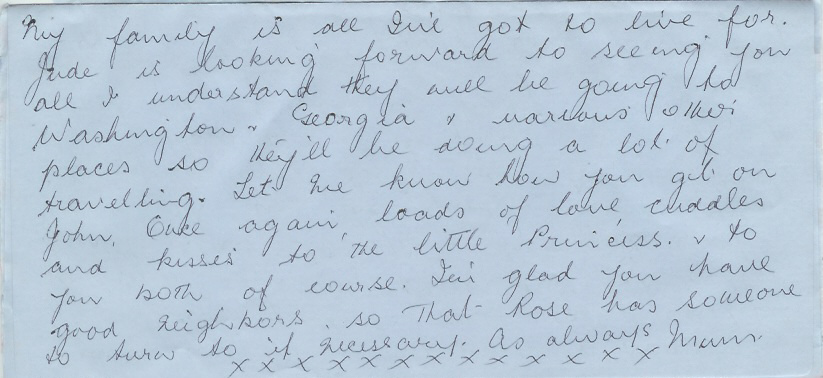 My family is all I've got to live for.
Jude is looking forward to seeing you
all I understand they will be going to
Washington & Georgia & various other
places so they'll be doing a lot of
travelling. Let me know how you get on
John. Once again, loads of love cuddles
and kisses to the little Princess. & to
you both of course. I'm glad you have
good neighbors. so that Rose has someone
to turn to if necessary. As always Mum
x x x x x x x x x x x x x